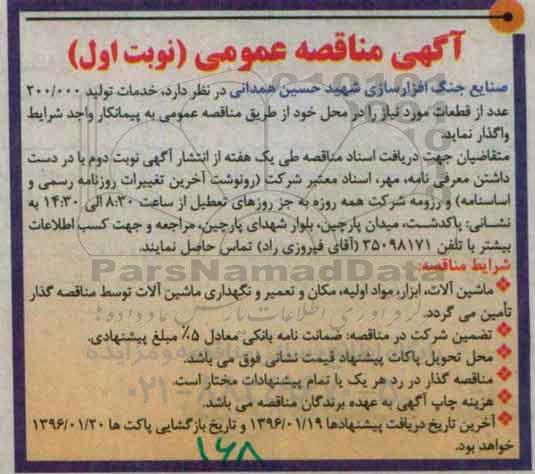 آگهی مناقصه عمومی (نوبت اول)
صنایع جنگ افزارسازی شهید حسین همدانی در نظر دارد، خدمات تولید ۲۰۰/۰۰۰
عدد از قطعات مورد نیاز را در محل خود از طریق مناقصه عمومی به پیمانکار واجد شرایط
واگذار نماید.
متقاضیان جهت دریافت اسناد مناقصه طی یک هفته از انتشار آگهی نوبت دوم با در دست
داشتن معرفی نامه، مهر، اسناد معتبر شرکت (رونوشت آخرین تغییرات روزنامه رسمی و
اساسنامه) و رزومه شرکت همه روزه به جز روزهای تعطیل از ساعت ۸:۳۰ الی ۱۴:۳۰ به
نشانی: پاکدشت، میدان پارچین، بلوار شهدای پارچین، مراجعه و جهت کسب اطلاعات
بیشتر با تلفن ۳۵۰۹۸۱۷۱ (آقای فیروزی راد) تماس حاصل نمایند.
شرایط مناقصه:
ماشین آلات، ابزار، مواد اولیه، مکان و تعمیر و نگهداری ماشین آلات توسط مناقصه گذار
تأمین می گردد.
تضمین شرکت در مناقصه: ضمانت نامه بانکی معادل ۵٪ مبلغ پیشنهادی.
محل تحویل پاکات پیشنهاد قیمت نشانی فوق می باشد.
مناقصه گذار در رد هر یک یا تمام پیشنهادات مختار است.
هزینه چاپ آگهی به عهده برندگان مناقصه می باشد.
آخرین تاریخ دریافت پیشنهادها ۱۳۹۶/۰۱/۱۹ و تاریخ بازگشایی پاکت ها ۱۳۹۶/۰۱/۲۰
خواهد بود.
۱۶۸
ParsNamadData